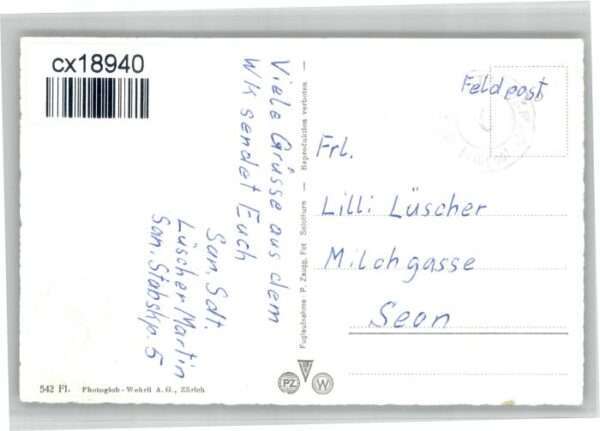 cx18940
Viele Grüsse aus dem
WK sendet Euch
San. Sdt.
Lüscher Martin
San. Stabskp. 5
Fugaufnahme P. Zaugg, Fot. Solothurn — Reproduktion verboten —
Feldpost
Frl.
Lilli Lüscher
Milchgasse
Seon
542 Fl. Photoglob-Wehrli A. G., Zürich
PZ W